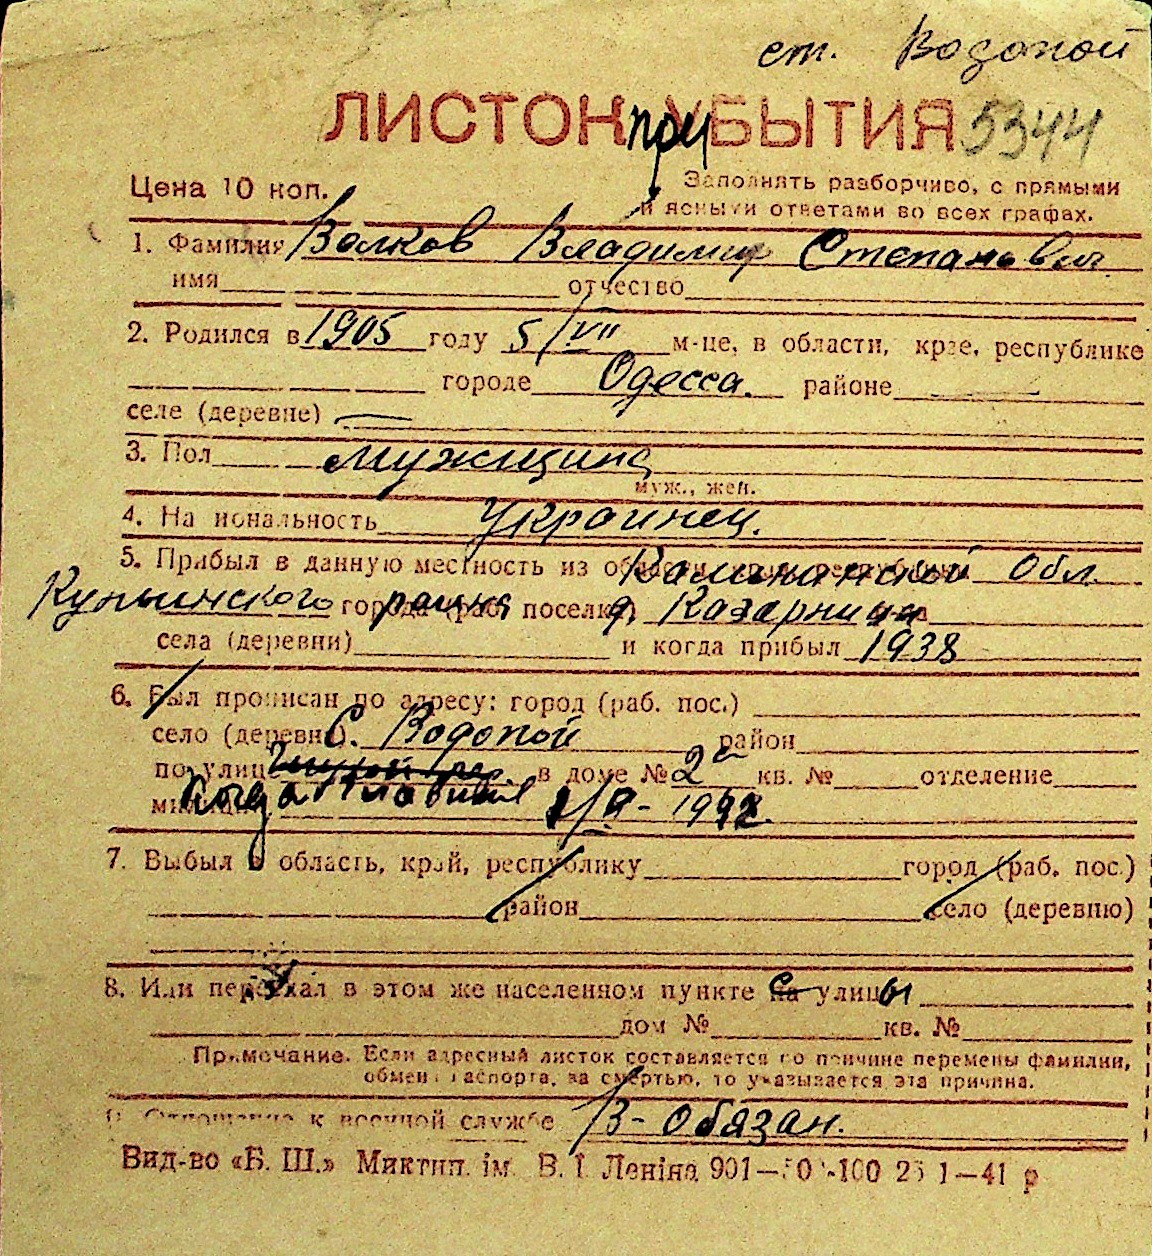 ст. Водопой
ЛИСТОК при УБЫТИЯ 5344
Цена 10 коп.
Заполнять разборчиво, с прямыми
и ясными ответами во всех графах.
1. Фамилия Волков Владимир Степанович
имя отчество
2. Родился в 1905 году 5/VII м-це, в области, крае, республике
городе Одесса. районе
селе (деревне) —
3. Пол мужщина
муж., жен.
4. Национальность Украинец.
5. Прибыл в данную местность из области, края, республики Калининской Обл.
города (раб. поселка) д.
села (деревни) и когда прибыл 1938
6. Был прописан по адресу: город (раб. пос.)
село (деревня) С. Водопой район
по улице в доме № 2а кв. № отделение
милиции 1942
7. Выбыл в область, край, республику город (раб. пос.)
район село (деревню)
8. Или переехал в этом же населенном пункте с улицы
дом № кв. №
Примечание. Если адресный листок составляется по причине перемены фамилии,
обмена паспорта, за смертью, то указывается эта причина.
9. Отношение к военной службе В-обязан.
Вид-во «Б. Ш.» Миктип. ім. В. І. Леніна 901—